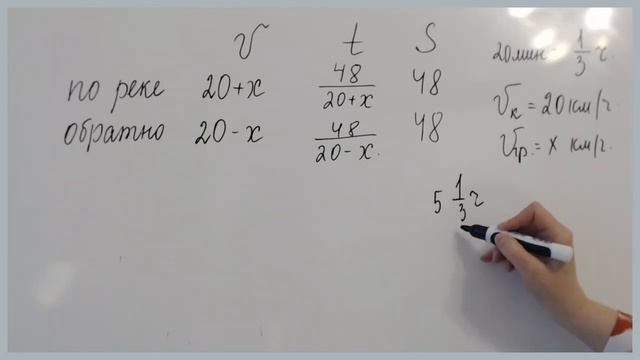 V t S
по реке 20+x 48/20+x 48
обратно 20-x 48/20-x. 48
20мин - 1/3 ч.
Vк = 20 км/ч
Vтр. = x км/ч.
5 1/3 ч